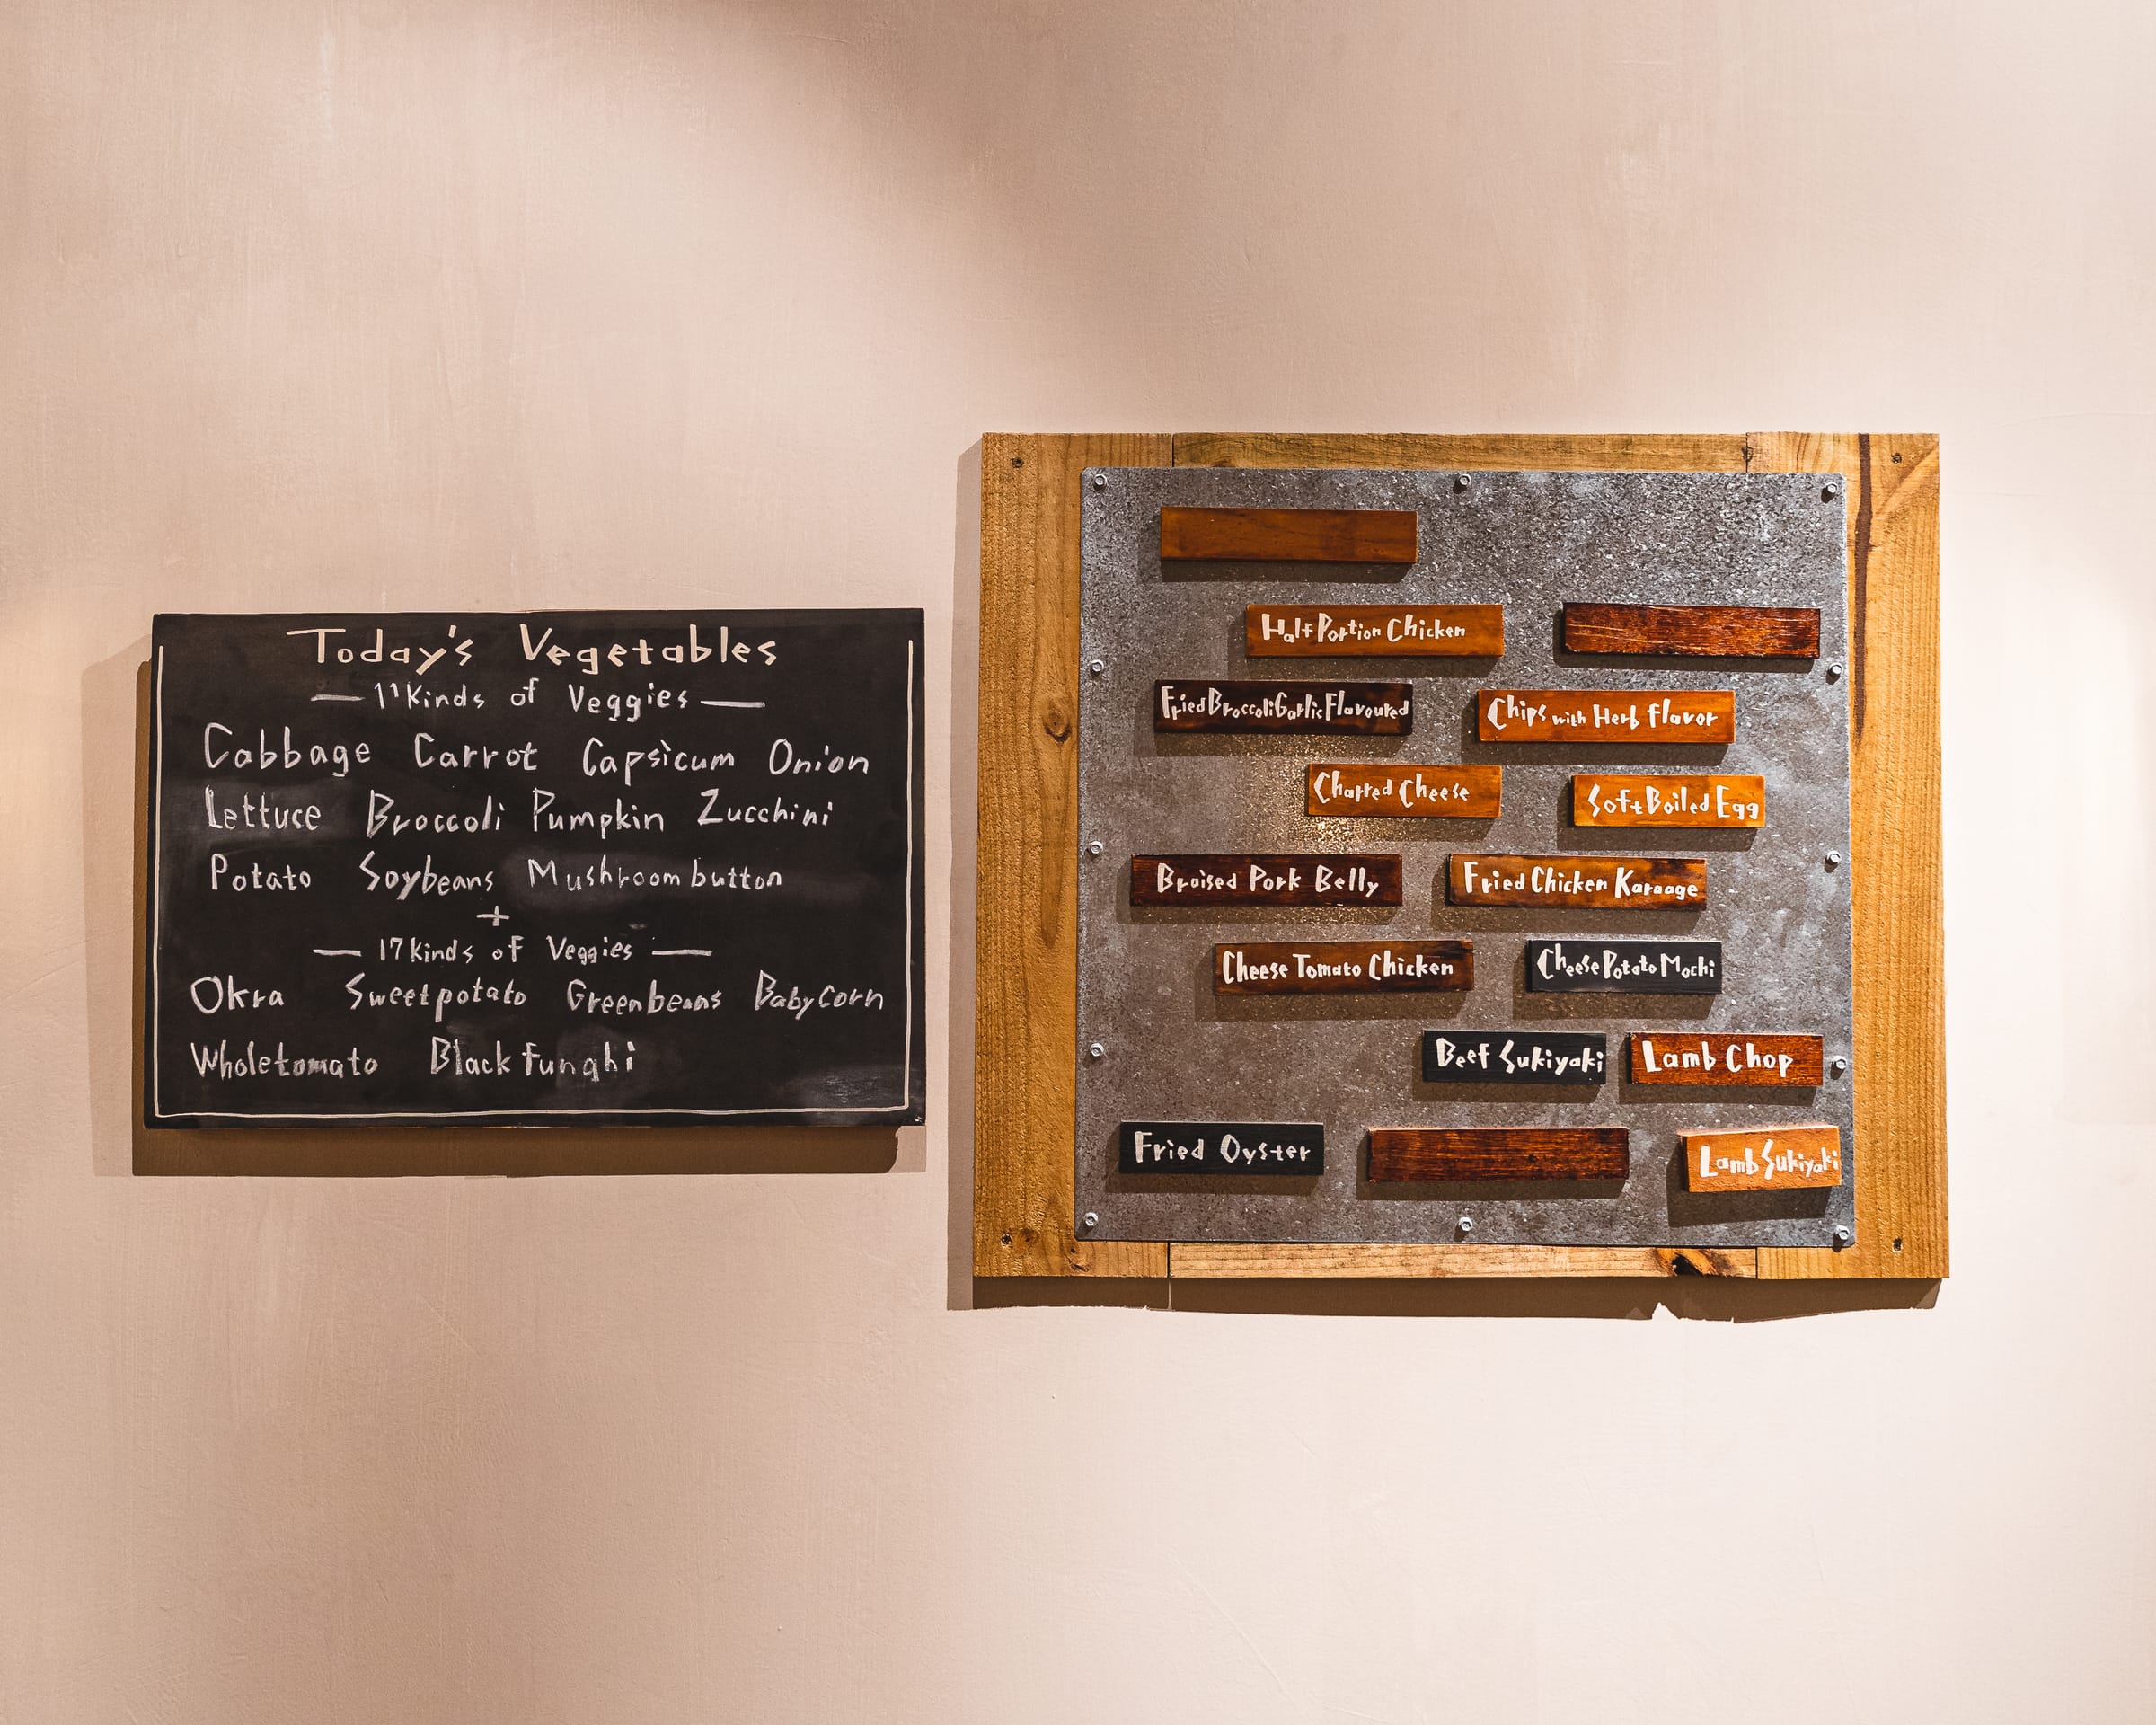 Today's Vegetables
— 11 Kinds of Veggies —
Cabbage Carrot Capsicum Onion
Lettuce Broccoli Pumpkin Zucchini
Potato Soybeans Mushroom button
+
— 17 kinds of Veggies —
Okra Sweetpotato Greenbeans Babycorn
Wholetomato Black funghi
Half Portion Chicken
Fried Broccoli Garlic Flavoured
Chips with Herb Flavor
Charred Cheese
Soft Boiled Egg
Braised Pork Belly
Fried Chicken Karaage
Cheese Tomato Chicken
Cheese Potato Mochi
Beef Sukiyaki
Lamb Chop
Fried Oyster
Lamb Sukiyaki